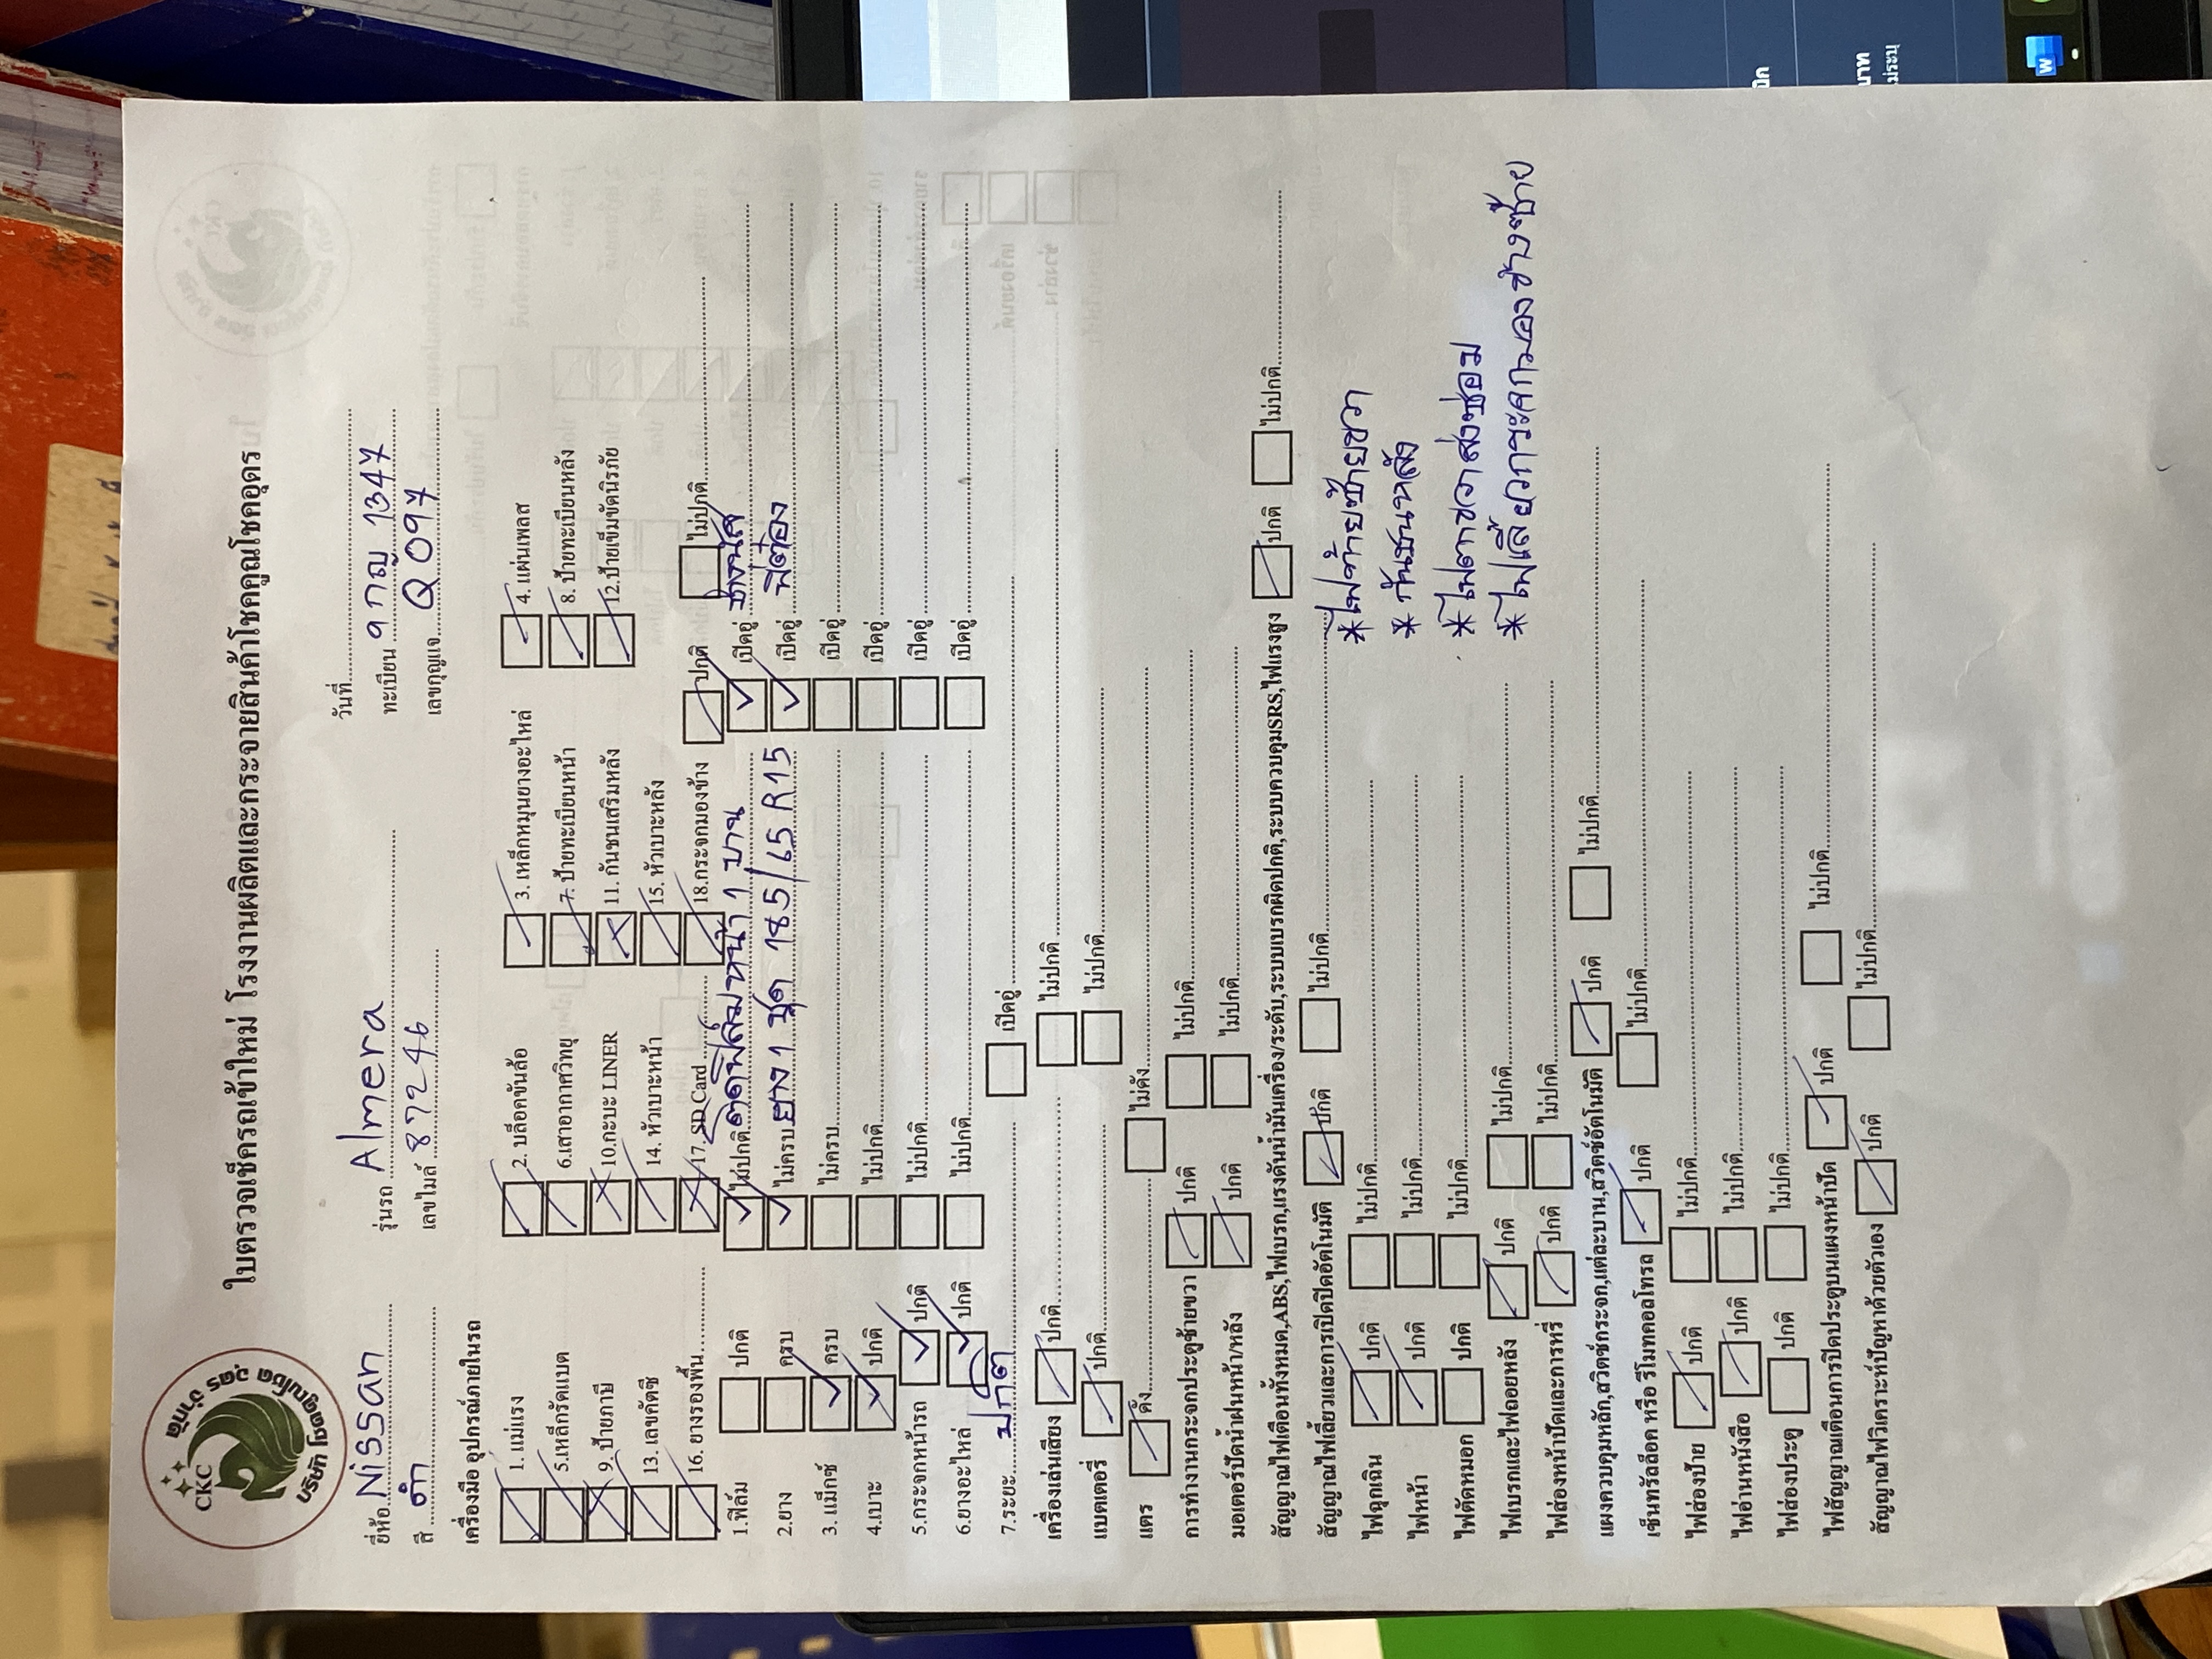 ใบตรวจเช็ครถเข้าใหม่ โรงงานผลิตและกระจายสินค้าโชคคูณโชคอุดร
CKC
บริษัท โชคคูณโชค อุดร จำกัด
วันที่
ยี่ห้อ Nissan รุ่นรถ Almera ทะเบียน 9 กญ 1347
สี ดำ เลขไมล์ 87246 เลขกุญแจ Q097
เครื่องมือ อุปกรณ์ภายในรถ
1. แม่แรง 2. บล็อคขันล้อ 3. เหล็กหมุนยางอะไหล่ 4. แผ่นเพลส
5.เหล็กรัดแบต 6.เสาอากาศวิทยุ 7. ป้ายทะเบียนหน้า 8. ป้ายทะเบียนหลัง
9. ป้ายภาษี 10.กะบะ LINER 11. กันชนเสริมหลัง 12.ป้ายเข็มขัดนิรภัย
13. เลขคัดซี 14. หัวเบาะหน้า 15. หัวเบาะหลัง
16. ยางรองพื้น 17. SD Card 18.กระจกมองข้าง ปกติ ไม่ปกติ
1.ฟิล์ม ปกติ ไม่ปกติ ติดฟิล์มหน้า 1 บาน เบิคอู่
2.ยาง ครบ ไม่ครบ ยาง 1 ชุด 185/65 R15 เบิคอู่ พี่ต๋อง
3. แม็กซ์ ครบ ไม่ครบ เบิคอู่
4.เบาะ ปกติ ไม่ปกติ เบิคอู่
5.กระจกหน้ารถ ปกติ ไม่ปกติ เบิคอู่
6.ยางอะไหล่ ปกติ ไม่ปกติ เบิคอู่
7.ระยะ ปกติ เบิคอู่
เครื่องเล่นเสียง ปกติ ไม่ปกติ
แบตเตอรี่ ปกติ ไม่ปกติ
แตร ดัง ไม่ดัง
การทำงานกระจกประตูซ้ายขวา ปกติ ไม่ปกติ
มอเตอร์ปัดน้ำฝนหน้า/หลัง ปกติ ไม่ปกติ
สัญญาณไฟเตือนทั้งหมด,ABS,ไฟเบรก,แรงดันน้ำมันเครื่อง/ระดับ,ระบบเบรกผิดปกติ,ระบบควบคุมSRS,ไฟแรงสูง ปกติ ไม่ปกติ
สัญญาณไฟเลี้ยวและการเปิดปิดอัตโนมัติ ปกติ ไม่ปกติ
ไฟฉุกเฉิน ปกติ ไม่ปกติ * ไฟท้ายซ้ายขวา
ไฟหน้า ปกติ ไม่ปกติ * กันชนหลัง
ไฟตัดหมอก ปกติ ไม่ปกติ * ไฟตาขวาส่งซ่อม
ไฟเบรกและไฟถอยหลัง ปกติ ไม่ปกติ * ไฟเลี้ยวกระจกมองข้างซ้าย
ไฟส่องหน้าปัดและการหรี่ ปกติ ไม่ปกติ
แผงควบคุมหลัก,สวิตซ์กระจก,แต่ละบาน,สวิตซ์อัตโนมัติ ปกติ ไม่ปกติ
เซ็นทรัลล็อค หรือ รีโมทคอลโทรล ปกติ ไม่ปกติ
ไฟส่องป้าย ปกติ ไม่ปกติ
ไฟอ่านหนังสือ ปกติ ไม่ปกติ
ไฟส่องประตู ปกติ ไม่ปกติ
ไฟสัญญาณเตือนการปิดประตูบนแผงหน้าปัด ปกติ ไม่ปกติ
สัญญาณไฟวิเคราะห์ปัญหาด้วยตัวเอง ปกติ ไม่ปกติ